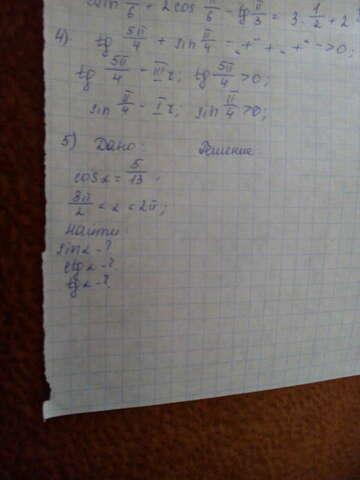 sin π/6 + 2cos π/6 - tg π/3 = 3 · 1/2 + 2
4). tg 5π/4 + sin π/4 - „+" + „+" -> 0;
tg 5π/4 - III г; tg 5π/4 > 0;
sin π/4 - I г; sin π/4 > 0;
5) Дано: Решение
cos α = 5/13.
3π/2 < α < 2π;
Найти
sin α - ?
ctg α - ?
tg α - ?